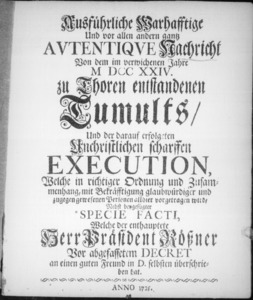 Ausführliche Warhafftige
Und vor allen andern gantz
AVTENTIQVE Nachricht
Von dem im verwichenen Jahre
M DCC XXIV.
zu Thoren entstandenen
Tumults/
Und der darauf erfolgten
Unchristlichen scharffen
EXECUTION,
Welche in richtiger Ordnung und Zusam-
menhang, mit Bekräfftigung glaubwürdiger und
zugegen gewesenen Personen allhier vorgetragen wird/
Nebst beygefügter
SPECIE FACTI,
Welche der enthauptete
Herr Präsident Rößner
Vor abgefasstem DECRET
an einen guten Freund in D. selbsten überschrie-
ben hat.
ANNO 1725.